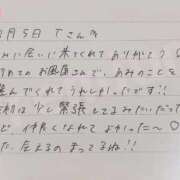 月5日 Tさんへ
会いに来てくれてありがとう
めてのお風俗さんで、あみのことを
選んでくれてうれしかったです!!
最初は少し緊張してるみたいだった
ど、仲良くなれてよかった〜
た、会えるのまってるね!!